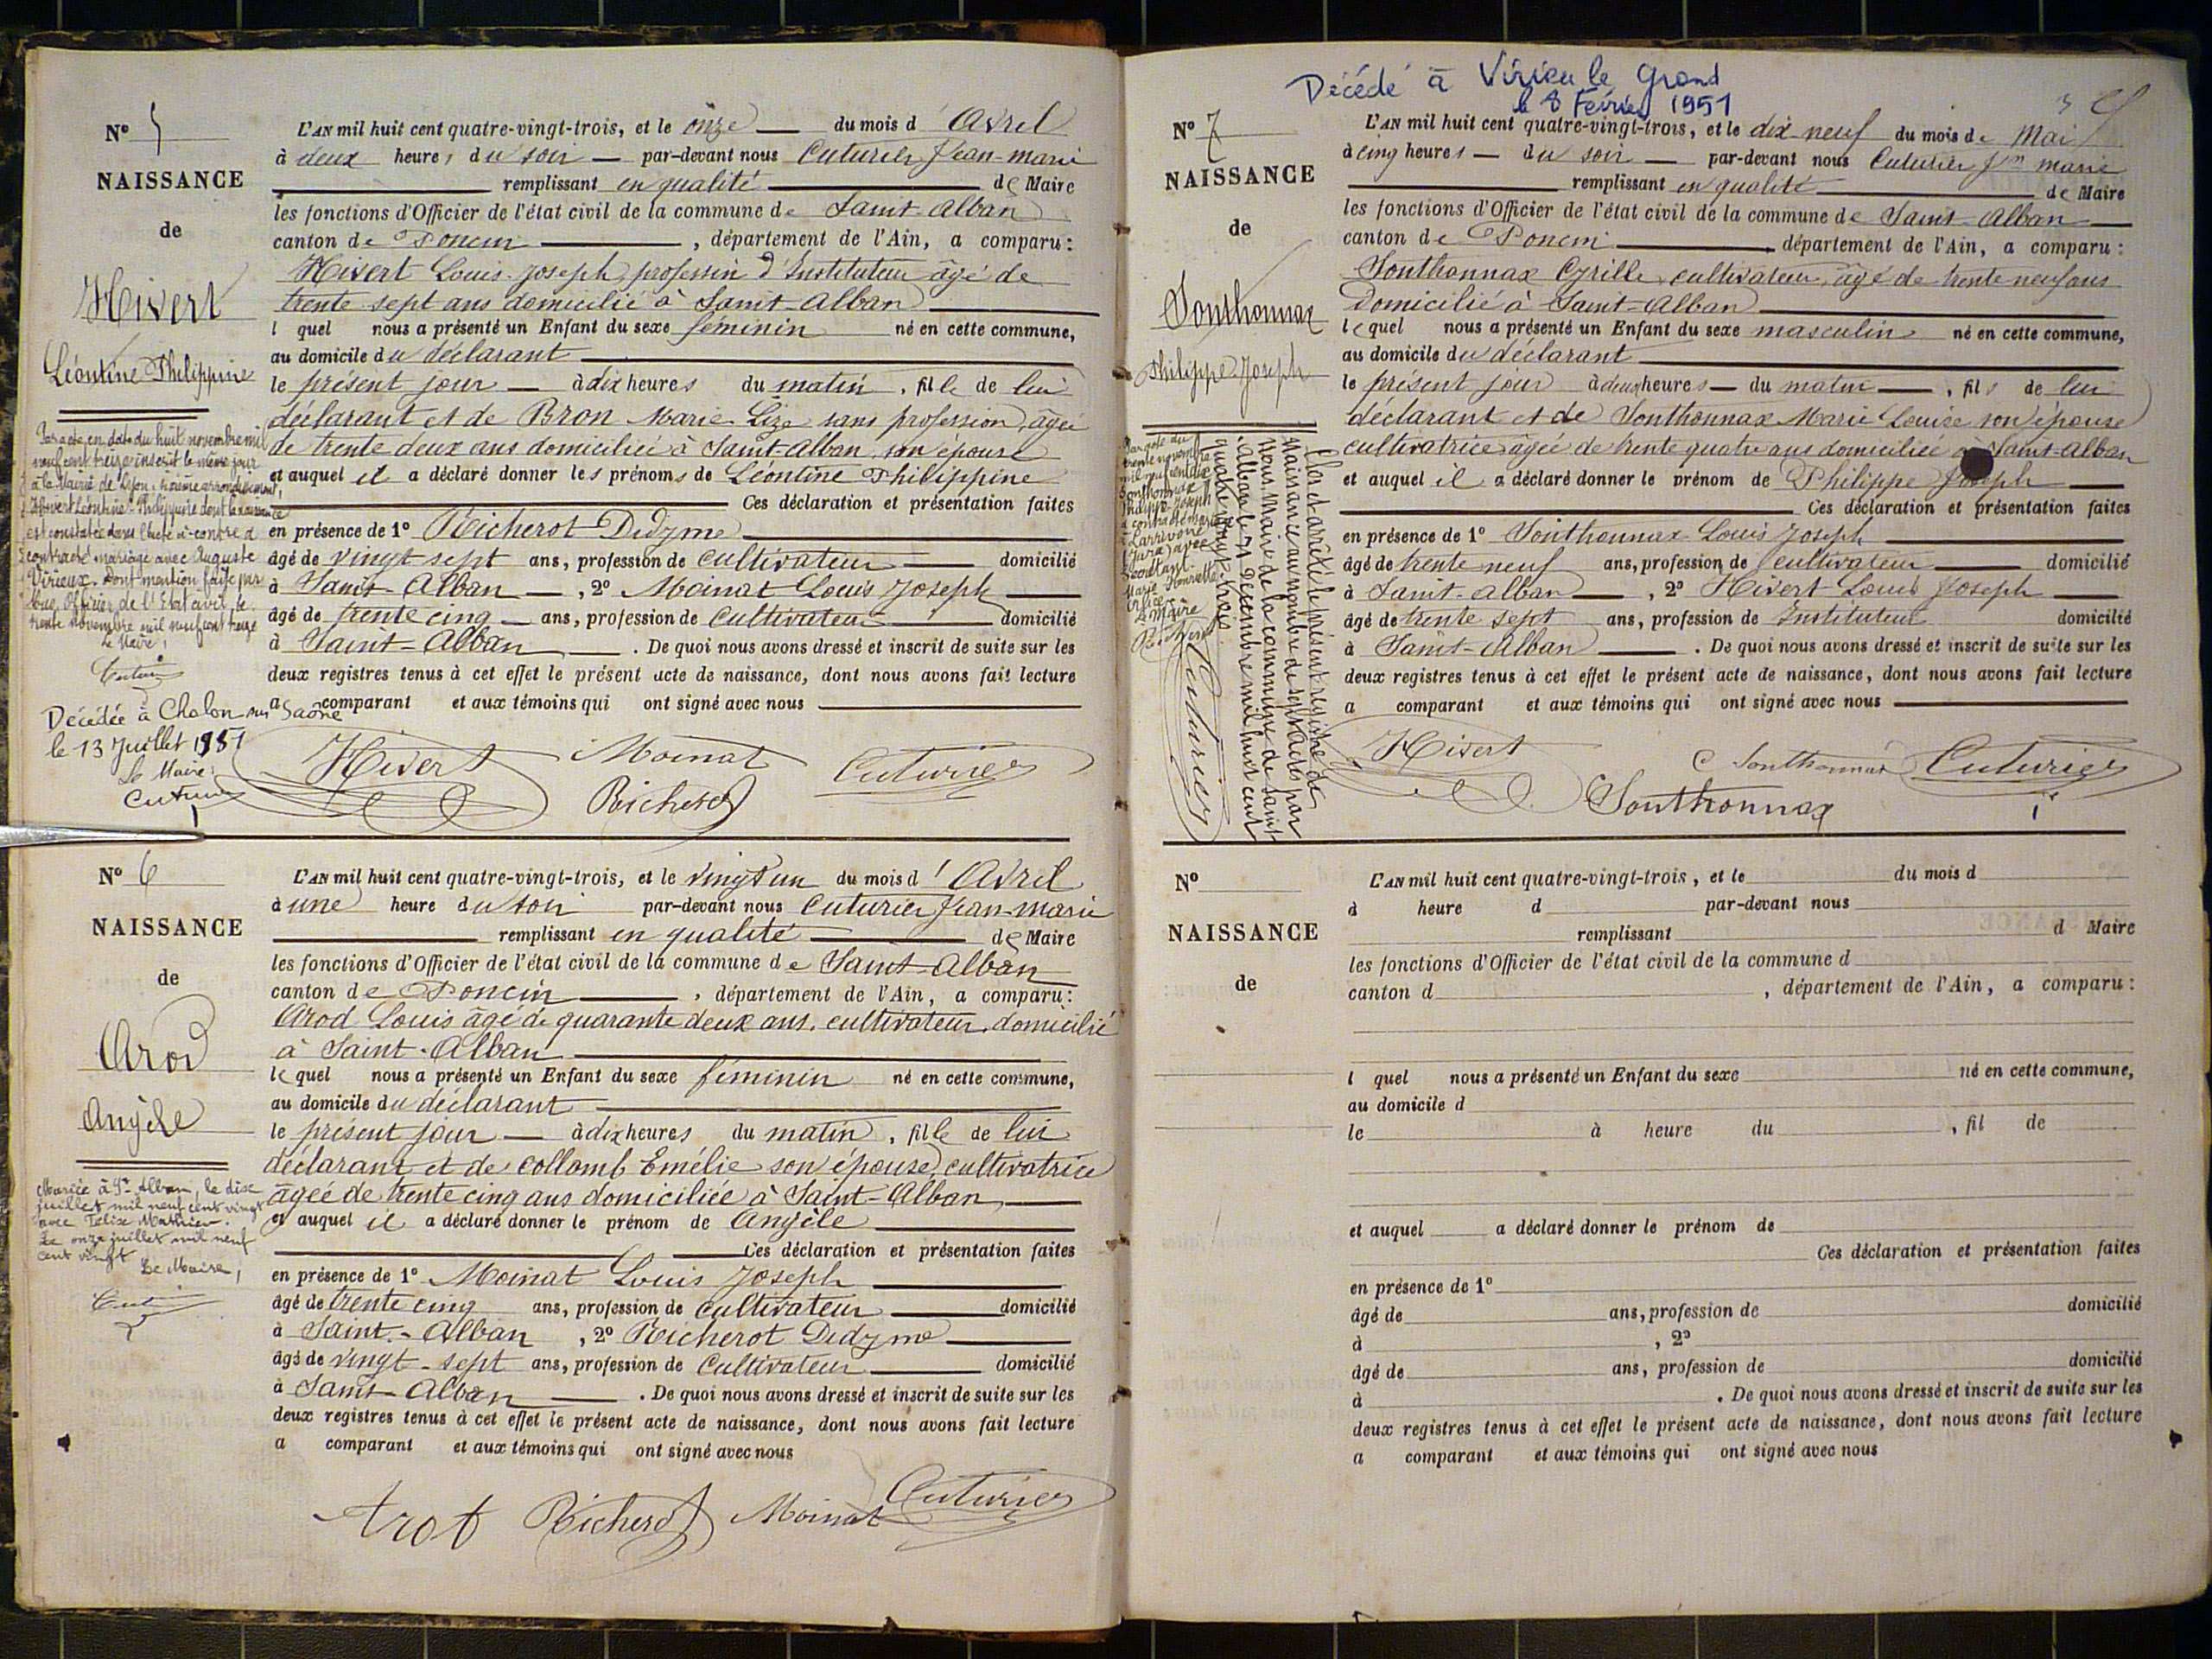 N° 5
NAISSANCE
de
Hivert
Léontine Philippine
Par acte en date du huit novembre mil
neuf cent treize inscrit le même jour
à la Mairie de Lyon, troisième arrondissement,
Hivert Léontine Philippine dont la naissance
est constatée dans l'acte ci-contre a
contracté mariage avec Auguste
Virieux. Dont mention faite par
Nous, Officier de l'Etat civil, le
trente novembre mil neuf cent treize
Le Maire,
Décédée à Chalon sur Saône
le 13 Juillet 1951
Le Maire:
L'AN mil huit cent quatre-vingt-trois, et le onze du mois d'Avril
à deux heures du soir par-devant nous Cuturier Jean-marie
remplissant en qualité de Maire
les fonctions d'Officier de l'état civil de la commune de Saint-Alban
canton de Poncin, département de l'Ain, a comparu:
Hivert Louis Joseph, profession d'Instituteur âgé de
trente sept ans domicilié à Saint-Alban
lequel nous a présenté un Enfant du sexe féminin né en cette commune,
au domicile du déclarant
le présent jour à dix heures du matin, fille de lui
déclarant et de Bron Marie Lize sans profession, âgée
de trente deux ans domiciliée à Saint-Alban, son épouse
et auquel il a déclaré donner les prénoms de Léontine Philippine
Ces déclaration et présentation faites
en présence de 1° Richerot Didyme
âgé de vingt sept ans, profession de cultivateur domicilié
à Saint-Alban, 2° Moinat Louis Joseph
âgé de trente cinq ans, profession de cultivateur domicilié
à Saint-Alban. De quoi nous avons dressé et inscrit de suite sur les
deux registres tenus à cet effet le présent acte de naissance, dont nous avons fait lecture
a comparant et aux témoins qui ont signé avec nous
Hivert Moinat Cuturier
Richerot
N° 6
NAISSANCE
de
Arod
Angèle
Mariée à St-Alban, le dix
juillet mil neuf cent vingt
avec Félix Mathieu.
Le onze juillet mil neuf
cent vingt
Le Maire,
L'AN mil huit cent quatre-vingt-trois, et le vingt un du mois d'Avril
à une heure du soir par-devant nous Cuturier Jean-marie
remplissant en qualité de Maire
les fonctions d'Officier de l'état civil de la commune de Saint-Alban
canton de Poncin, département de l'Ain, a comparu:
Arod Louis âgé de quarante deux ans, cultivateur, domicilié
à Saint-Alban
lequel nous a présenté un Enfant du sexe féminin né en cette commune,
au domicile du déclarant
le présent jour à dix heures du matin, fille de lui
déclarant et de Collomb Emélie son épouse, cultivatrice
âgée de trente cinq ans domiciliée à Saint-Alban
et auquel il a déclaré donner le prénom de Angèle
Ces déclaration et présentation faites
en présence de 1° Moinat Louis Joseph
âgé de trente cinq ans, profession de cultivateur domicilié
à Saint-Alban, 2° Richerot Didyme
âgé de vingt-sept ans, profession de Cultivateur domicilié
à Saint-Alban. De quoi nous avons dressé et inscrit de suite sur les
deux registres tenus à cet effet le présent acte de naissance, dont nous avons fait lecture
a comparant et aux témoins qui ont signé avec nous
Arot Richerot Moinat Cuturier
Décédé à Virieu le Grand
le 8 Février 1951
N° 7
NAISSANCE
de
Sonthonnax
Philippe Joseph
Par acte du
trente novembre
mil neuf cent dix
Sonthonnax
Philippe Joseph
a contracté mariage
à Larrivoire
(Jura) avec
Secrétant
Marie Henriette
Le Maire
Clos et arrêté le présent registre de
Naissances au nombre de sept actes par
Nous Maire de la commune de Saint
Alban le 31 Décembre mil huit cent
quatre vingt trois
Cuturier
L'AN mil huit cent quatre-vingt-trois, et le dix neuf du mois de Mai
à cinq heures du soir par-devant nous Cuturier Jn marie
remplissant en qualité de Maire
les fonctions d'Officier de l'état civil de la commune de Saint-Alban
canton de Poncin département de l'Ain, a comparu:
Sonthonnax Cyrille, cultivateur, âgé de trente neuf ans
Domicilié à Saint-Alban
lequel nous a présenté un Enfant du sexe masculin né en cette commune,
au domicile du déclarant
le présent jour à deux heures du matin, fils de lui
déclarant et de Sonthonnax Marie Louise son épouse
cultivatrice âgée de trente quatre ans domiciliée à Saint-Alban
et auquel il a déclaré donner le prénom de Philippe Joseph
Ces déclaration et présentation faites
en présence de 1° Sonthonnax Louis Joseph
âgé de trente neuf ans, profession de cultivateur domicilié
à Saint-Alban, 2° Hivert Louis Joseph
âgé de trente sept ans, profession de Instituteur domicilié
à Saint-Alban. De quoi nous avons dressé et inscrit de suite sur les
deux registres tenus à cet effet le présent acte de naissance, dont nous avons fait lecture
a comparant et aux témoins qui ont signé avec nous
Hivert C Sonthonnax Cuturier
Sonthonnax
N°
NAISSANCE
de
L'AN mil huit cent quatre-vingt-trois, et le du mois d
à heure d par-devant nous
remplissant d Maire
les fonctions d'Officier de l'état civil de la commune d
canton d , département de l'Ain, a comparu:
l quel nous a présenté un Enfant du sexe né en cette commune,
au domicile d
le à heure du , fil de
et auquel a déclaré donner le prénom de
Ces déclaration et présentation faites
en présence de 1°
âgé de ans, profession de domicilié
à , 2°
âgé de ans, profession de domicilié
à . De quoi nous avons dressé et inscrit de suite sur les
deux registres tenus à cet effet le présent acte de naissance, dont nous avons fait lecture
a comparant et aux témoins qui ont signé avec nous